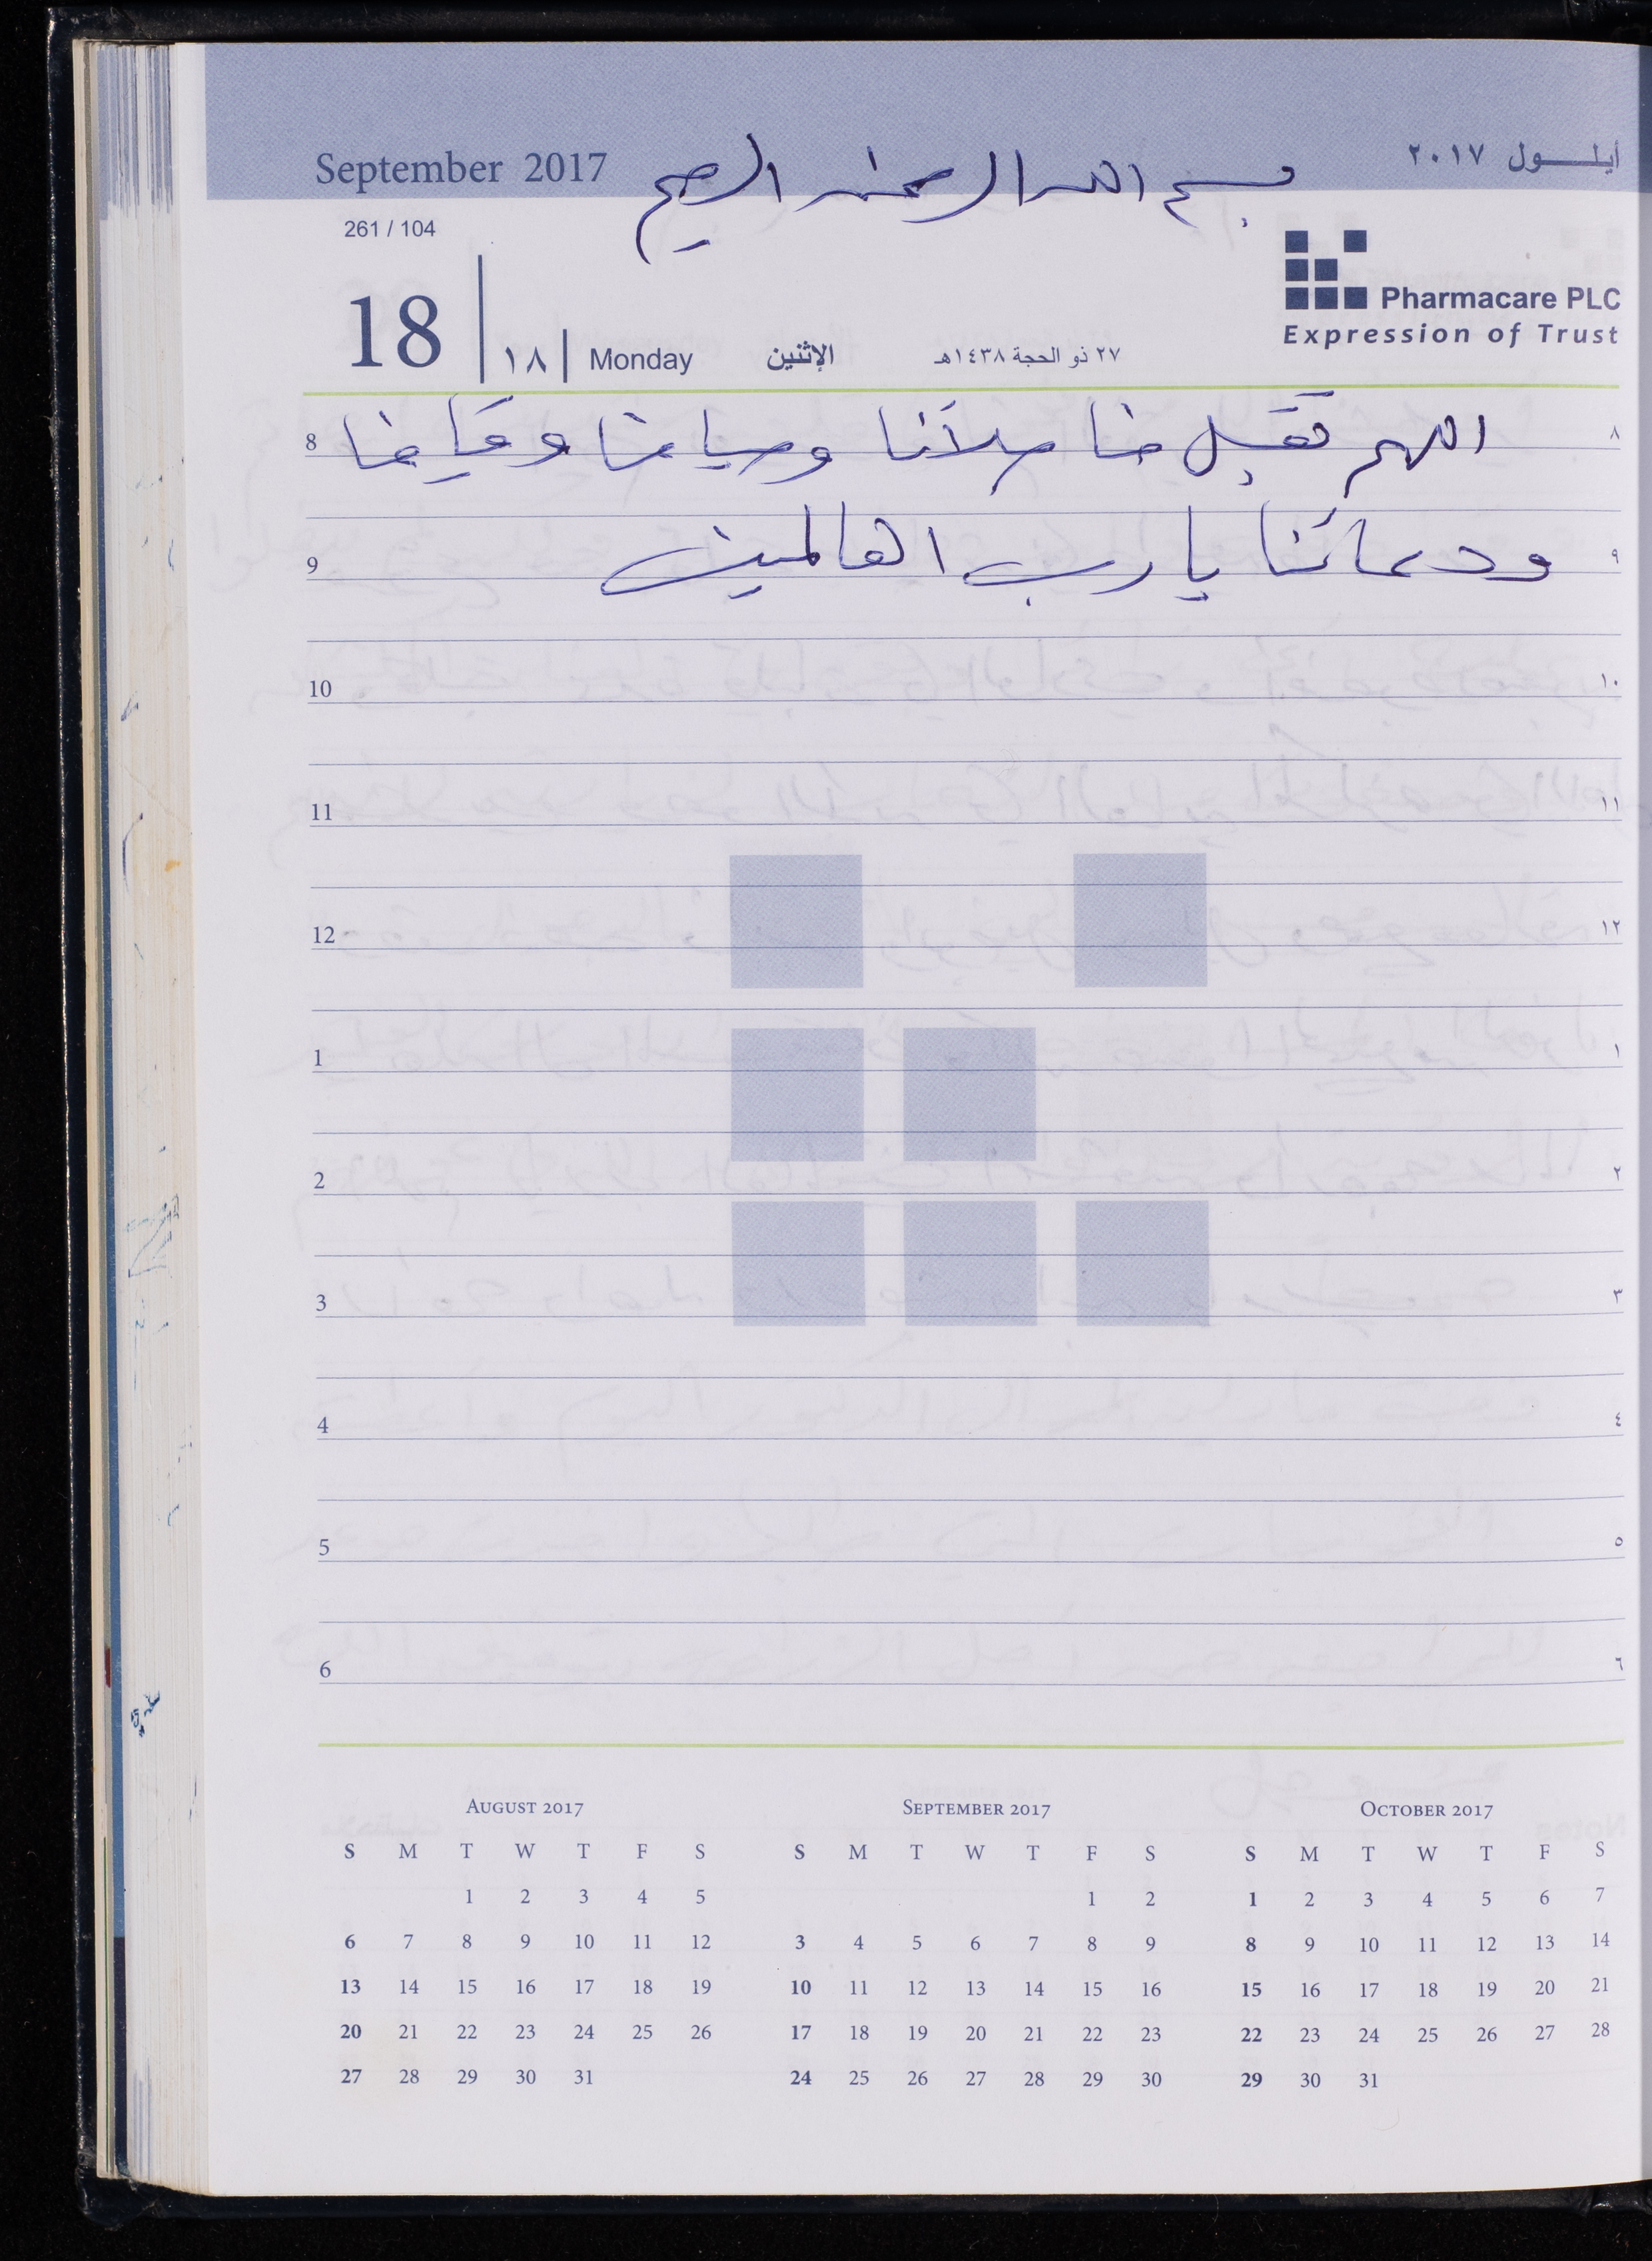 September 2017 بسم الله الرحمن الرحيم أيلول ٢٠١٧
261 / 104
Pharmacare PLC
Expression of Trust
18 ١٨ Monday الإثنين ٢٧ ذو الحجة ١٤٣٨هـ
8 اللهم تقبل منا صلاتنا وصيامنا وقيامنا ٨
9 ودعائنا يا رب العالمين ٩
10 ١٠
11 ١١
12 ١٢
1 ١
2 ٢
3 ٣
4 ٤
5 ٥
6 ٦
August 2017
S M T W T F S
1 2 3 4 5
6 7 8 9 10 11 12
13 14 15 16 17 18 19
20 21 22 23 24 25 26
27 28 29 30 31
September 2017
S M T W T F S
1 2
3 4 5 6 7 8 9
10 11 12 13 14 15 16
17 18 19 20 21 22 23
24 25 26 27 28 29 30
October 2017
S M T W T F S
1 2 3 4 5 6 7
8 9 10 11 12 13 14
15 16 17 18 19 20 21
22 23 24 25 26 27 28
29 30 31